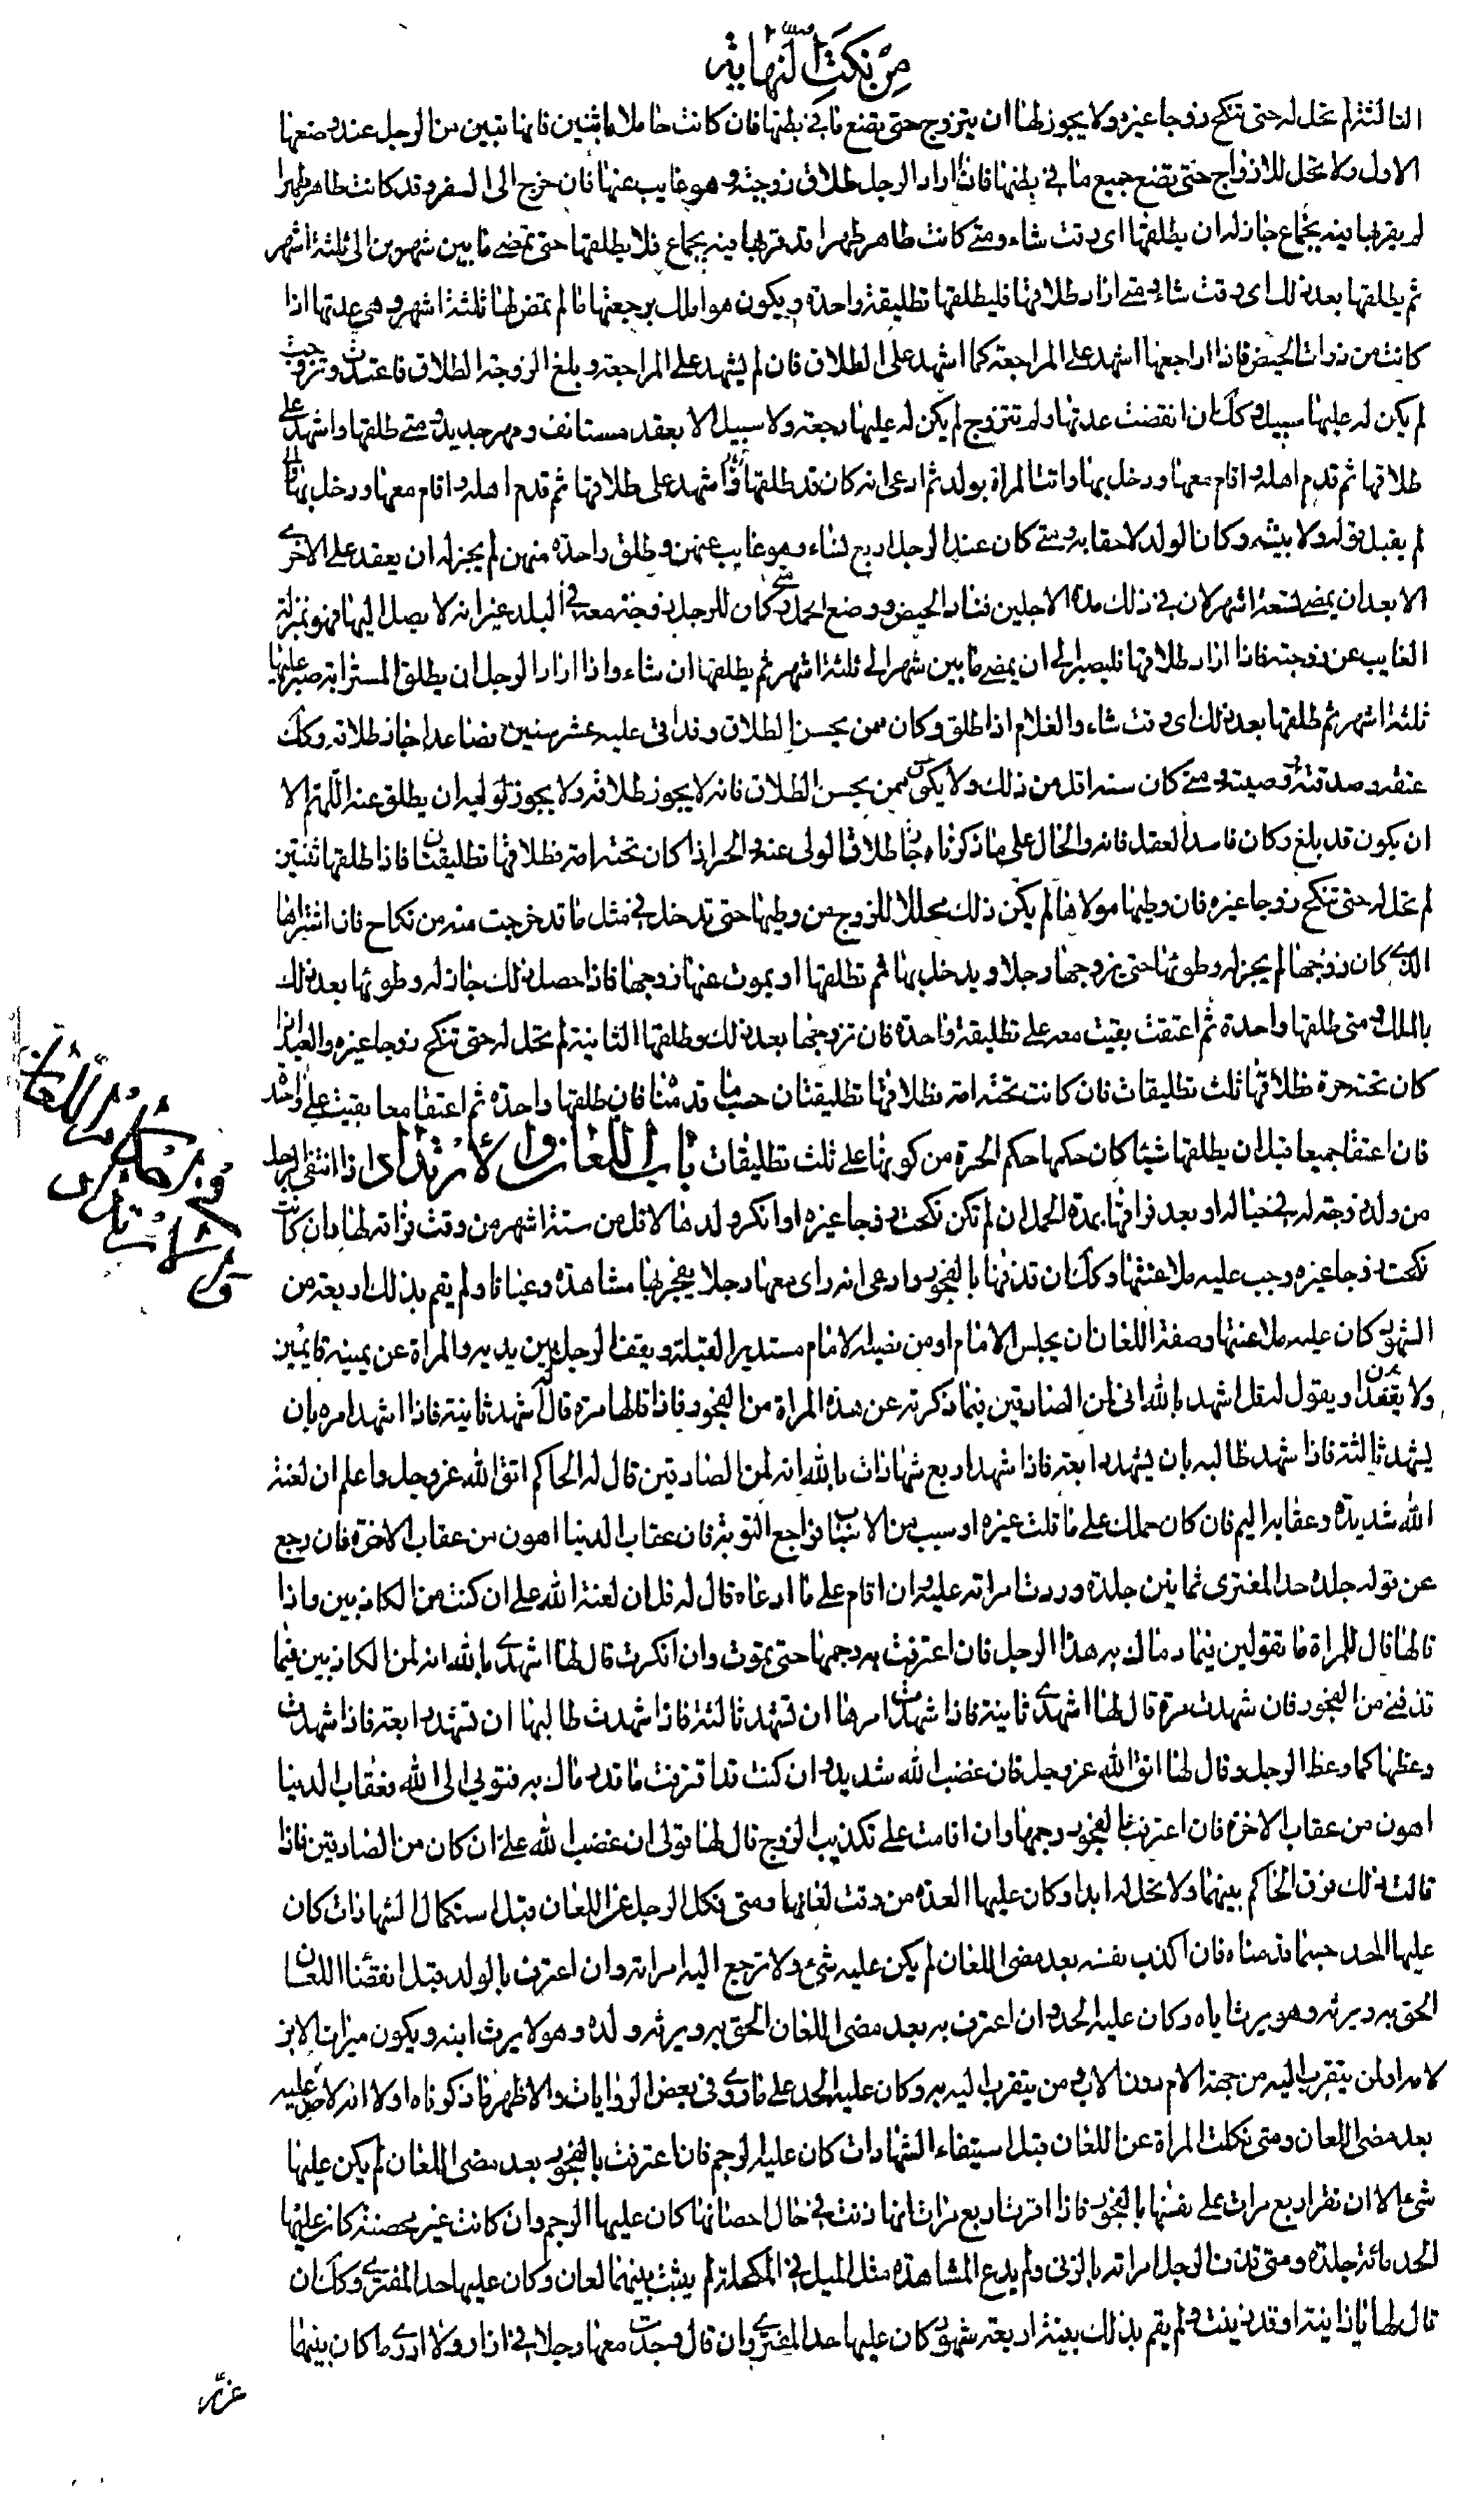 من نكت النهاية
الثالثة لم تحل له حتى تنكح زوجا غيره ولا يجوز لها ان يتزوج حتى تضع ما في بطنها فان كانت حاملا باثنين فانها تبين من الرجل عند وضعها
الاول ولا تحل للازواج حتى تضع جميع ما في بطنها فاذا اراد الرجل طلاق زوجته وهو غايب عنها فان خرج الى السفر وقد كانت طاهر طهرا
لم يقربها فيه بجماع جاز له ان يطلقها اى وقت شاء ومتى كانت طاهر طهرا قد قربها فيه بجماع فلا يطلقها حتى تمضي ما بين شهر من الى ثلثة اشهر
ثم يطلقها بعد ذلك اى وقت شاء ومتى اراد طلاقها فليطلقها تطليقة واحدة ويكون هو املك برجعتها ما لم تمض لها ثلثة اشهر وهى عدتها اذا
كانت من ذوات الحيض فاذا راجعها اشهد على المراجعة كما اشهد على الطلاق فان لم يشهد على المراجعة وبلغ الزوجة الطلاق فاعتدت وتزوجت
لم يكن له عليها سبيل وكك ان انقضت عدتها ولم تتزوج لم يكن له عليها رجعة ولا سبيل الا بعقد مستانف ومهر جديد ومتى طلقها واشهد على
طلاقها ثم قدم اهله واقام معها ودخل بها واتت المراة بولد ثم ادعى انه كان قد طلقها واشهد على طلاقها ثم قدم اهله واقام معها ودخل بها
لم يقبل قوله ولا بينته وكان الولد لاحقا به ومتى كان عند الرجل اربع نساء وهو غايب عنهن وطلق واحدة منهن لم يجز له ان يعقد على الاخرى
الا بعد ان يمضى تسعة اشهر لان في ذلك مدة الاجلين فساد الحيض ووضع الحمل ومتى كان للرجل زوجة معه في البلد غير انه لا يصل اليها فهو بمنزلة
الغايب عن زوجته فاذا اراد طلاقها فليصبر الى ان يمضي ما بين شهر الى ثلثة اشهر ثم يطلقها ان شاء واذا اراد الرجل ان يطلق المسترابة صبر عليها
ثلثة اشهر ثم طلقها بعد ذلك اى وقت شاء والغلام اذا طلق وكان ممن يحسن الطلاق وقد اتى عليه عشر سنين فصاعدا جاز طلاقه وكك
عتقه وصدقته ووصيته ومتى كان سنه اقل من ذلك ولا يكون ممن يحسن الطلاق فانه لا يجوز طلاقه ولا يجوز لوليه ان يطلق عنه اللهم الا
ان يكون قد بلغ وكان فاسد العقل فانه والحال على ما ذكرناه جاز طلاق الولى عنه والحر اذا كان تحته امة فطلاقها تطليقتان فاذا طلقها ثنتين
لم تحل له حتى تنكح زوجا غيره فان وطيها مولاها لم يكن ذلك محللا للزوج من وطيها حتى تدخل في مثل ما قد خرجت منه من نكاح فان اشتراها
الذى كان زوجها لم يجز له وطوئها حتى يزوجها رجلا ويدخل بها ثم تطلقها او يموت عنها زوجها فاذا حصل ذلك جاز له وطوئها بعد ذلك
بالملك ومتى طلقها واحدة ثم اعتقت بقيت معه على تطليقة واحدة فان تزوجها بعد ذلك وطلقها الثانية لم تحل له حتى تنكح زوجا غيره والعبد اذا
كان تحته حرة فطلاقها ثلث تطليقات فان كانت تحته امة فطلاقها تطليقتان حسب ما قدمنا فان طلقها واحدة ثم اعتقا معا بقيت على واحدة
فان اعتقا جميعا قبل ان يطلقها شيئا كان حكمها حكم الحرة من كونها على ثلث تطليقات باب اللعان والارتداد اذا انتفى الرجل
من ولد زوجة له في حباله او بعد فراقها بمدة الحمل ان لم تكن نكحت زوجا غيره او انكر ولدها لاقل من ستة اشهر من وقت فراقه لها وان كانت
نكحت زوجا غيره وجب عليه ملاعنتها وكك ان قذفها بالفجور وادعى انه راى معها رجلا يفجر بها مشاهدة وعيانا ولم يقم بذلك اربعة من
الشهود كان عليه ملاعنتها وصفة اللعان ان يجلس الامام او من نصبه الامام مستدبر القبلة ويقف الرجل بين يديه والمراة عن يمينه قايمين
ولا يقعدان ويقول له قل اشهد بالله انى لمن الصادقين فيما ذكرته عن هذه المراة من الفجور فاذا قالها مرة قال له اشهد ثانية فاذا اشهد امره بان
يشهد ثالثة فاذا شهد طالبه بان يشهد رابعة فاذا شهد اربع شهادات بالله انه لمن الصادقين قال له الحاكم اتق الله عز وجل واعلم ان لعنة
الله شديدة وعقابه اليم فان كان حملك على ما قلت غيرة او سبب من الاسباب فراجع التوبة فان عقاب الدنيا اهون من عقاب الاخرة فان رجع
عن قوله جلده حد المفترى ثمانين جلدة وردت امراته عليه وان اقام على ما ادعاه قال له قل ان لعنة الله على ان كنت من الكاذبين واذا
قالها قال للمراة ما تقولين فيما رماك به هذا الرجل فان اعترفت به رجمها حتى تموت وان انكرت قال لها اشهدى بالله انه لمن الكاذبين فيما
قذفنى من الفجور فان شهدت مرة قال لها اشهدى ثانية فاذا شهدت امرها ان تشهد ثالثة فاذا شهدت طالبها ان تشهد رابعة فاذا شهدت
وعظها كما وعظ الرجل وقال لها اتق الله عز وجل فان غضب الله شديد وان كنت قد اقترفت ما قد رماك به فتوبى الى الله فعقاب الدنيا
اهون من عقاب الاخرة فان اعترفت بالفجور رجمها وان اقامت على تكذيب الزوج قال لها قولى ان غضب الله على ان كان من الصادقين فاذا
قالت ذلك فرق الحاكم بينهما ولا تحل له ابدا وكان عليها العدة من وقت لعانها ومتى نكل الرجل عن اللعان قبل استكمال الشهادات كان
عليها الحد حسبما قدمناه فان اكذب نفسه بعد مضى اللعان لم يكن عليه شىء ولا ترجع اليه امراته وان اعترف بالولد قبل انقضاء اللعان
الحق به ويرثه وهو يرث اياه وكان عليه الحد وان اعترف به بعد مضى اللعان الحق به ويرثه ولده وهو لا يرث ابنه ويكون ميراث الابن
لامه او لمن يتقرب اليه من جهة الام دون الاب ومن يتقرب اليه به وكان عليه الحد على ما روى في بعض الروايات والاظهر ما ذكرناه اولا انه لا حد عليه
بعد مضى اللعان ومتى نكلت المراة عن اللعان قبل استيفاء الشهادات كان عليه الرجم فان اعترفت بالفجور بعد مضى اللعان لم يكن عليها
شىء الا ان تقر اربع مرات على نفسها بالفجور فاذا اقرت اربع مرات انها زنت في حال احصانها كان عليها الرجم وان كانت غير محصنة كان عليها
الحد مائة جلدة ومتى قذف الرجل امراته بالزنى ولم يدع المشاهدة مثل الميل في المكحلة لم يثبت بينهما لعان وكان عليها حد المفترى وكك ان
قال لها يا زانية او قد زنيت ولم يقم بذلك بينة اربعة شهود كان عليها حد المفترى وان قال وجدت معها رجلا في ازار ولا ادرى ما كان بينهما